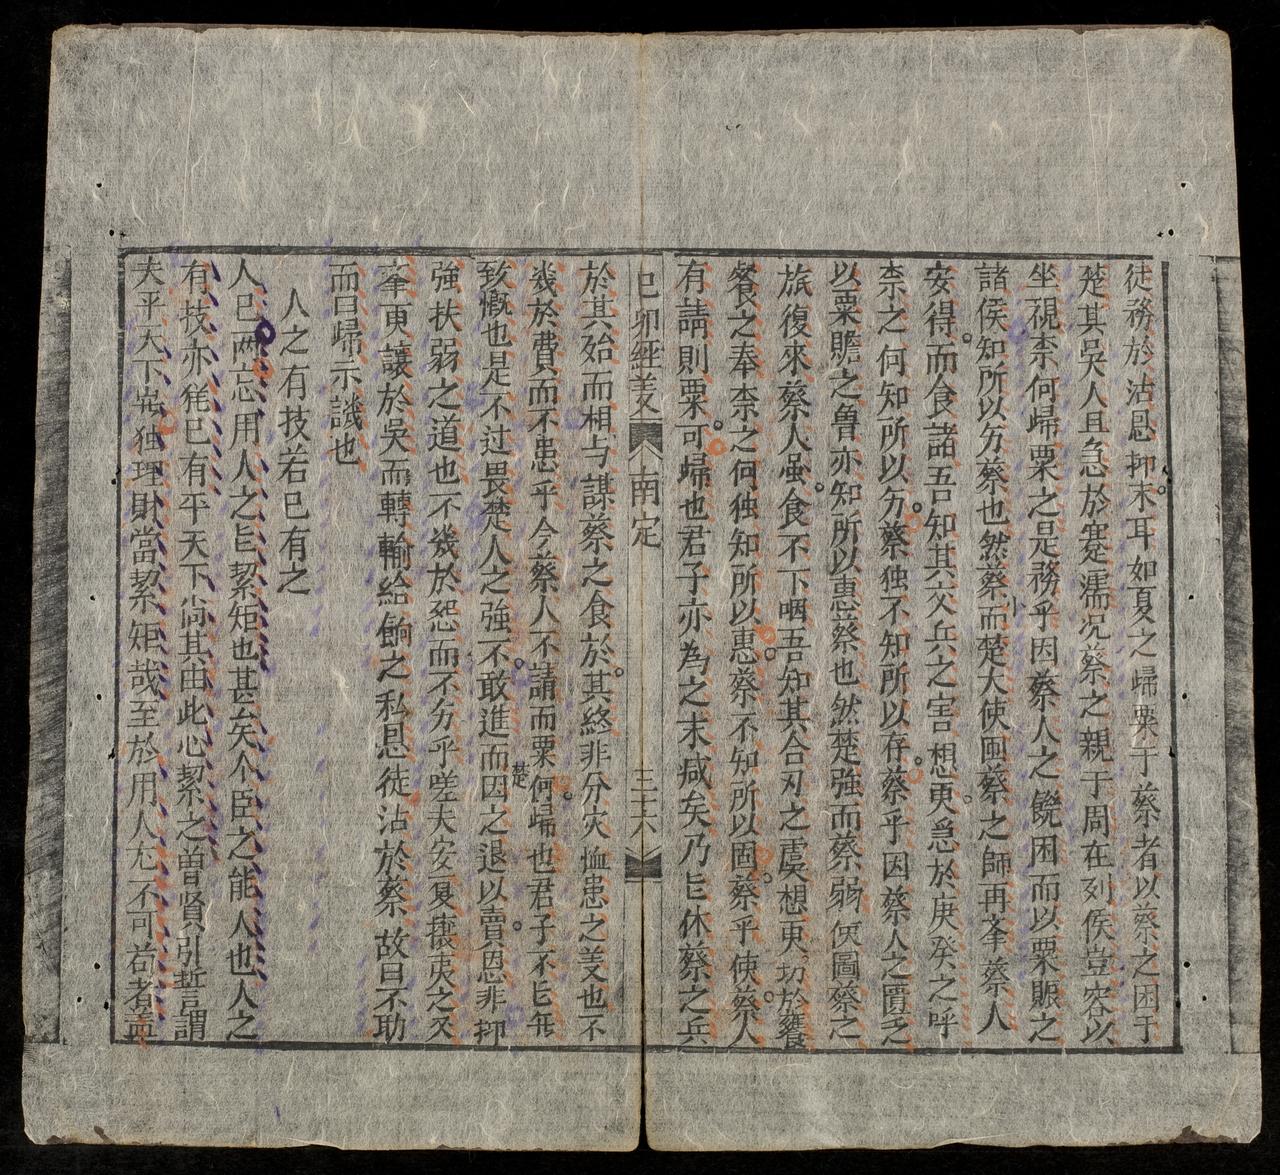 徒務於沾恩抑末耳如夏之歸粟于蔡者以蔡之困于
楚其吳人且急於蹇濡况蔡之親于周在列侯豈容以
坐視柰何歸粟之是務乎因蔡人之饒困而以粟賑之
諸侯知所以労蔡也然蔡而楚大使囬蔡之師再峯蔡人
安得而食諸吾知其六文兵之害想更急於庚癸之呼
柰之何知所以労蔡独不知所以存蔡乎因蔡人之匱乏
以粟贍之魯亦知所以惠蔡也然楚強而蔡弱伏圖蔡之
旅復來蔡人虽食不下咽吾知其合刃之虞想更切於饔
餐之奉柰之何独知所以惠蔡不知所以固蔡乎使蔡人
有請則粟可歸也君子亦為之末减矣乃㠯休蔡之兵
己卯經義 南定 三十六
於其始而相与謀蔡之食於其終非分灾恤患之義也不
幾於費而不患乎今蔡人不請而粟何歸也君子不㠯無
致慨也是不过畏楚人之強不敢進而因楚之退以賣恩非抑
強扶弱之道也不幾於恕而不分乎嗟夫安夏攘夷之义
峯更讓於吳而轉輸給餉之私恩徒沾於蔡故曰不助
而曰歸示譏也
人之有技若已有之
人已両忘用人之㠯絜矩也甚矣个臣之能人也人之
有技亦犹已有平天下尚其由此心絜之曽賢引誓謂
夫平天下岂独理財當絜矩哉至於用人尤不可若者盖